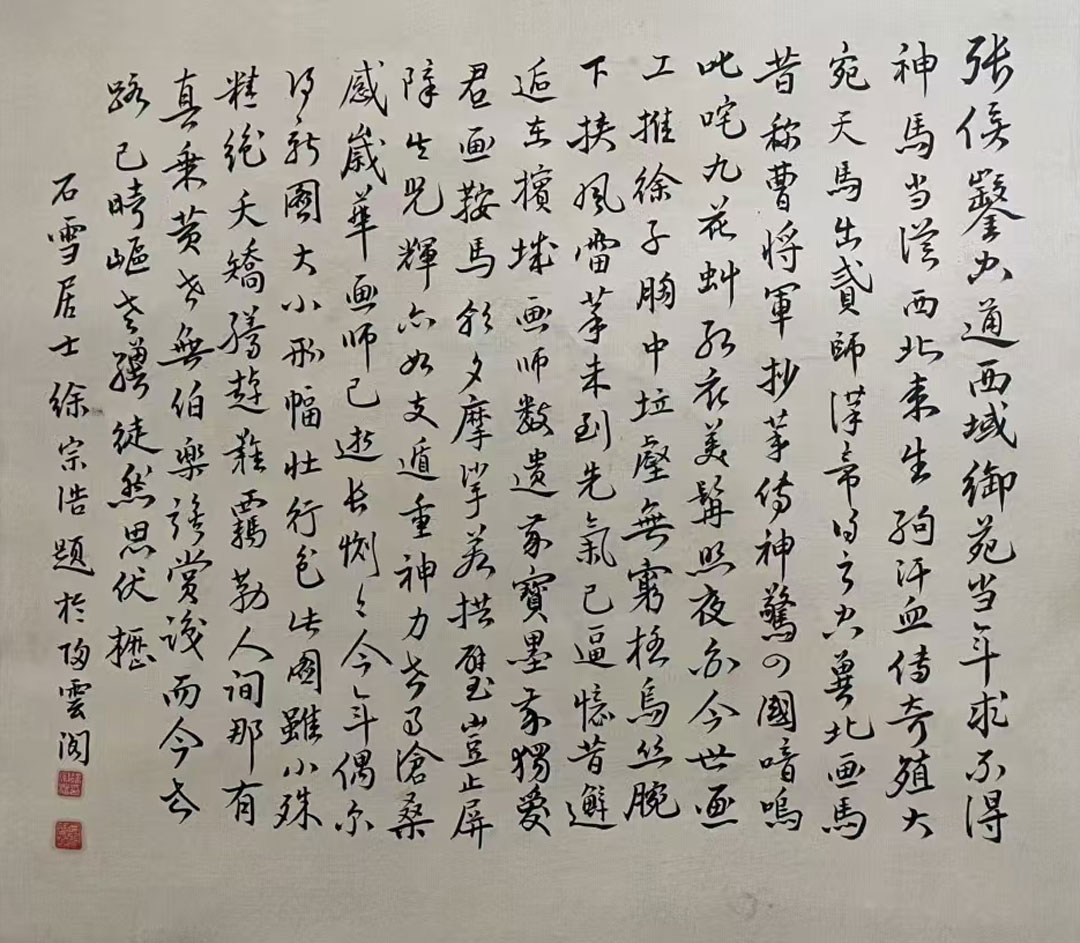 张侯鑿空通西域御苑当年求不得
神馬当從西北来生駒汗血傳奇殖大
宛天馬出貳師漢帝得之空冀北画馬
昔称曹将軍抄筆傳神驚四國喑嗚
叱咤九花虬乱衣美髯照夜白今世画
工推徐子胸中垃壑無窮極烏丝腕
下挟風雷筆未到先氣已逼憶昔邂
逅在濱城画师数遗象寶墨象獨愛
君画鞍馬朝夕摩挲若拱璧豈止屏
障生光輝亦如支遁重神力世事滄桑
感歲華画师已逝长恻々今年偶尔
得新圖大小形幅壮行色此圖雖小殊
精绝夭矯騰趠難覊勒人间那有
真乘黄世無伯樂誇赏識而今世
路已崎嶇老驥徒然思伏櫪
石雪居士徐宗浩題於陶雲阁